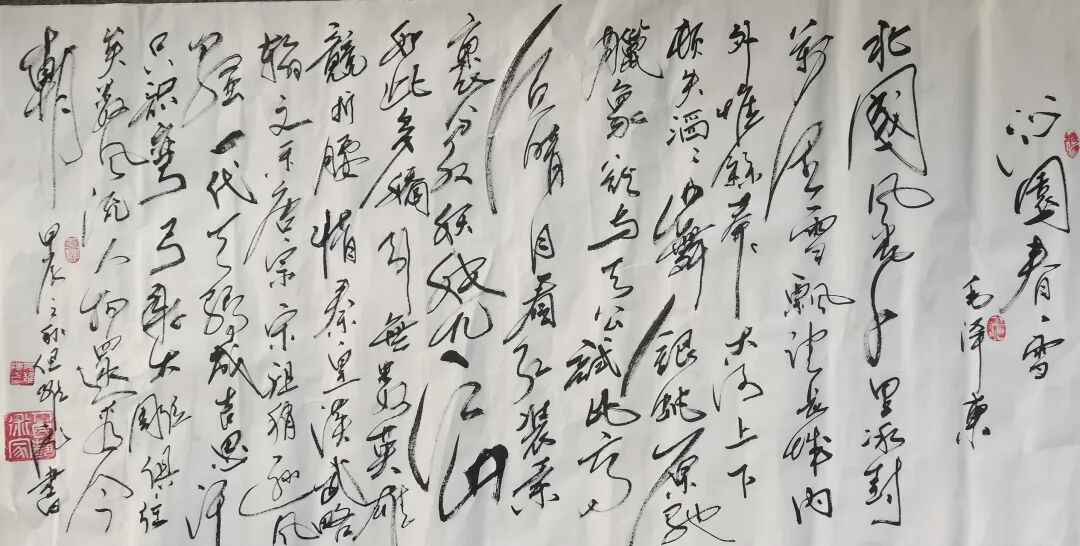 沁園春、雪
毛泽東
北國风光千里冰封
萬里雪飄望长城内
外惟餘莽、大河上下
頓失滔、山舞銀蛇原馳
臘象欲与天公試比高
须晴日看红装素
裹分外妖娆江山
如此多嬌引無數英雄
競折腰惜秦皇漢武略
输文采唐宗宋祖稍逊风
骚一代天骄成吉思汗
只识彎弓射大雕俱往
矣数风流人物還看今
朝
甲辰之秋 书